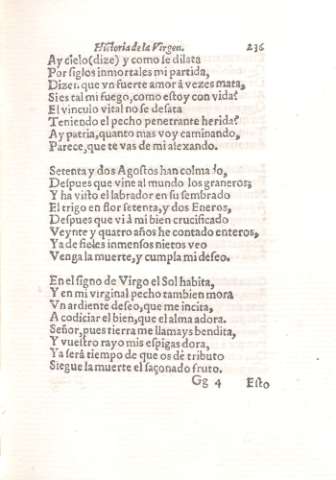 Historia de la Virgen. 236
Ay cielo(dize) y como se dilata
Por siglos inmortales mi partida,
Dizen que vn fuerte amor à vezes mata,
Si es tal mi fuego, como estoy con vida?
El vinculo vital no se desata
Teniendo el pecho penetrante herida?
Ay patria, quanto mas voy caminando,
Parece, que te vas de mi alexando.
Setenta y dos Agostos han colmado,
Despues que vine al mundo los graneros,
Y ha visto el labrador en su sembrado
El trigo en flor setenta, y dos Eneros,
Despues que vi à mi bien crucificado
Veynte y quatro años he contado enteros,
Ya de fieles inmensos nietos veo
Venga la muerte, y cumpla mi deseo.
En el signo de Virgo el Sol habita,
Y en mi virginal pecho tambien mora
Vn ardiente deseo, que me incita,
A codiciar el bien, que el alma adora.
Señor, pues tierra me llamays bendita,
Y vuestro rayo mis espigas dora,
Ya serà tiempo de que os dè tributo
Siegue la muerte el saçonado fruto.
Gg 4 Esto